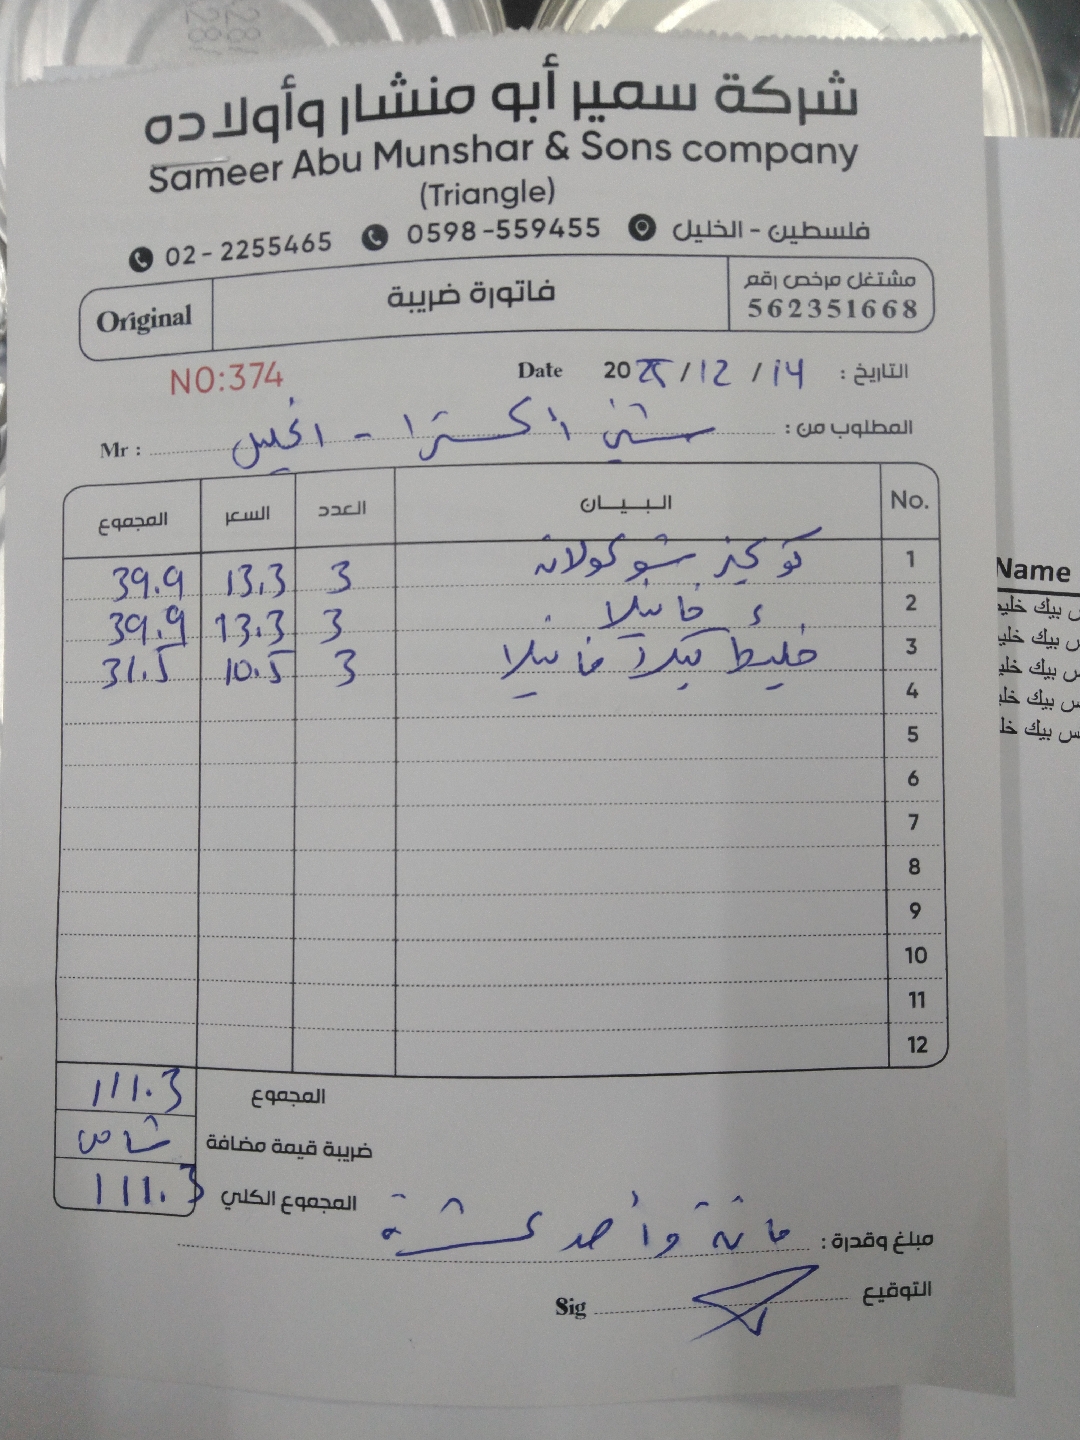 شركة سمير أبو منشار وأولاده
Sameer Abu Munshar & Sons company
(Triangle)
02-2255465 0598-559455 فلسطين - الخليل
Original فاتورة ضريبة مشتغل مرخص رقم
562351668
NO:374 Date 2025/12/14 التاريخ :
Mr : المطلوب من : اكسترا - الخليل
No. البيــان العدد السعر المجموع
1 كوكيز شوكولاته 3 13.3 39.9
2 فانيلا 3 13.3 39.9
3 خليط كيك فانيلا 3 10.5 31.5
4
5
6
7
8
9
10
11
12
المجموع 111.3
ضريبة قيمة مضافة شامل
المجموع الكلي 111.3
مبلغ وقدرة : مائة وأحد عشرة
التوقيع Sig
Name
س بيك
س بيك
س بيك
س بيك
س بيك